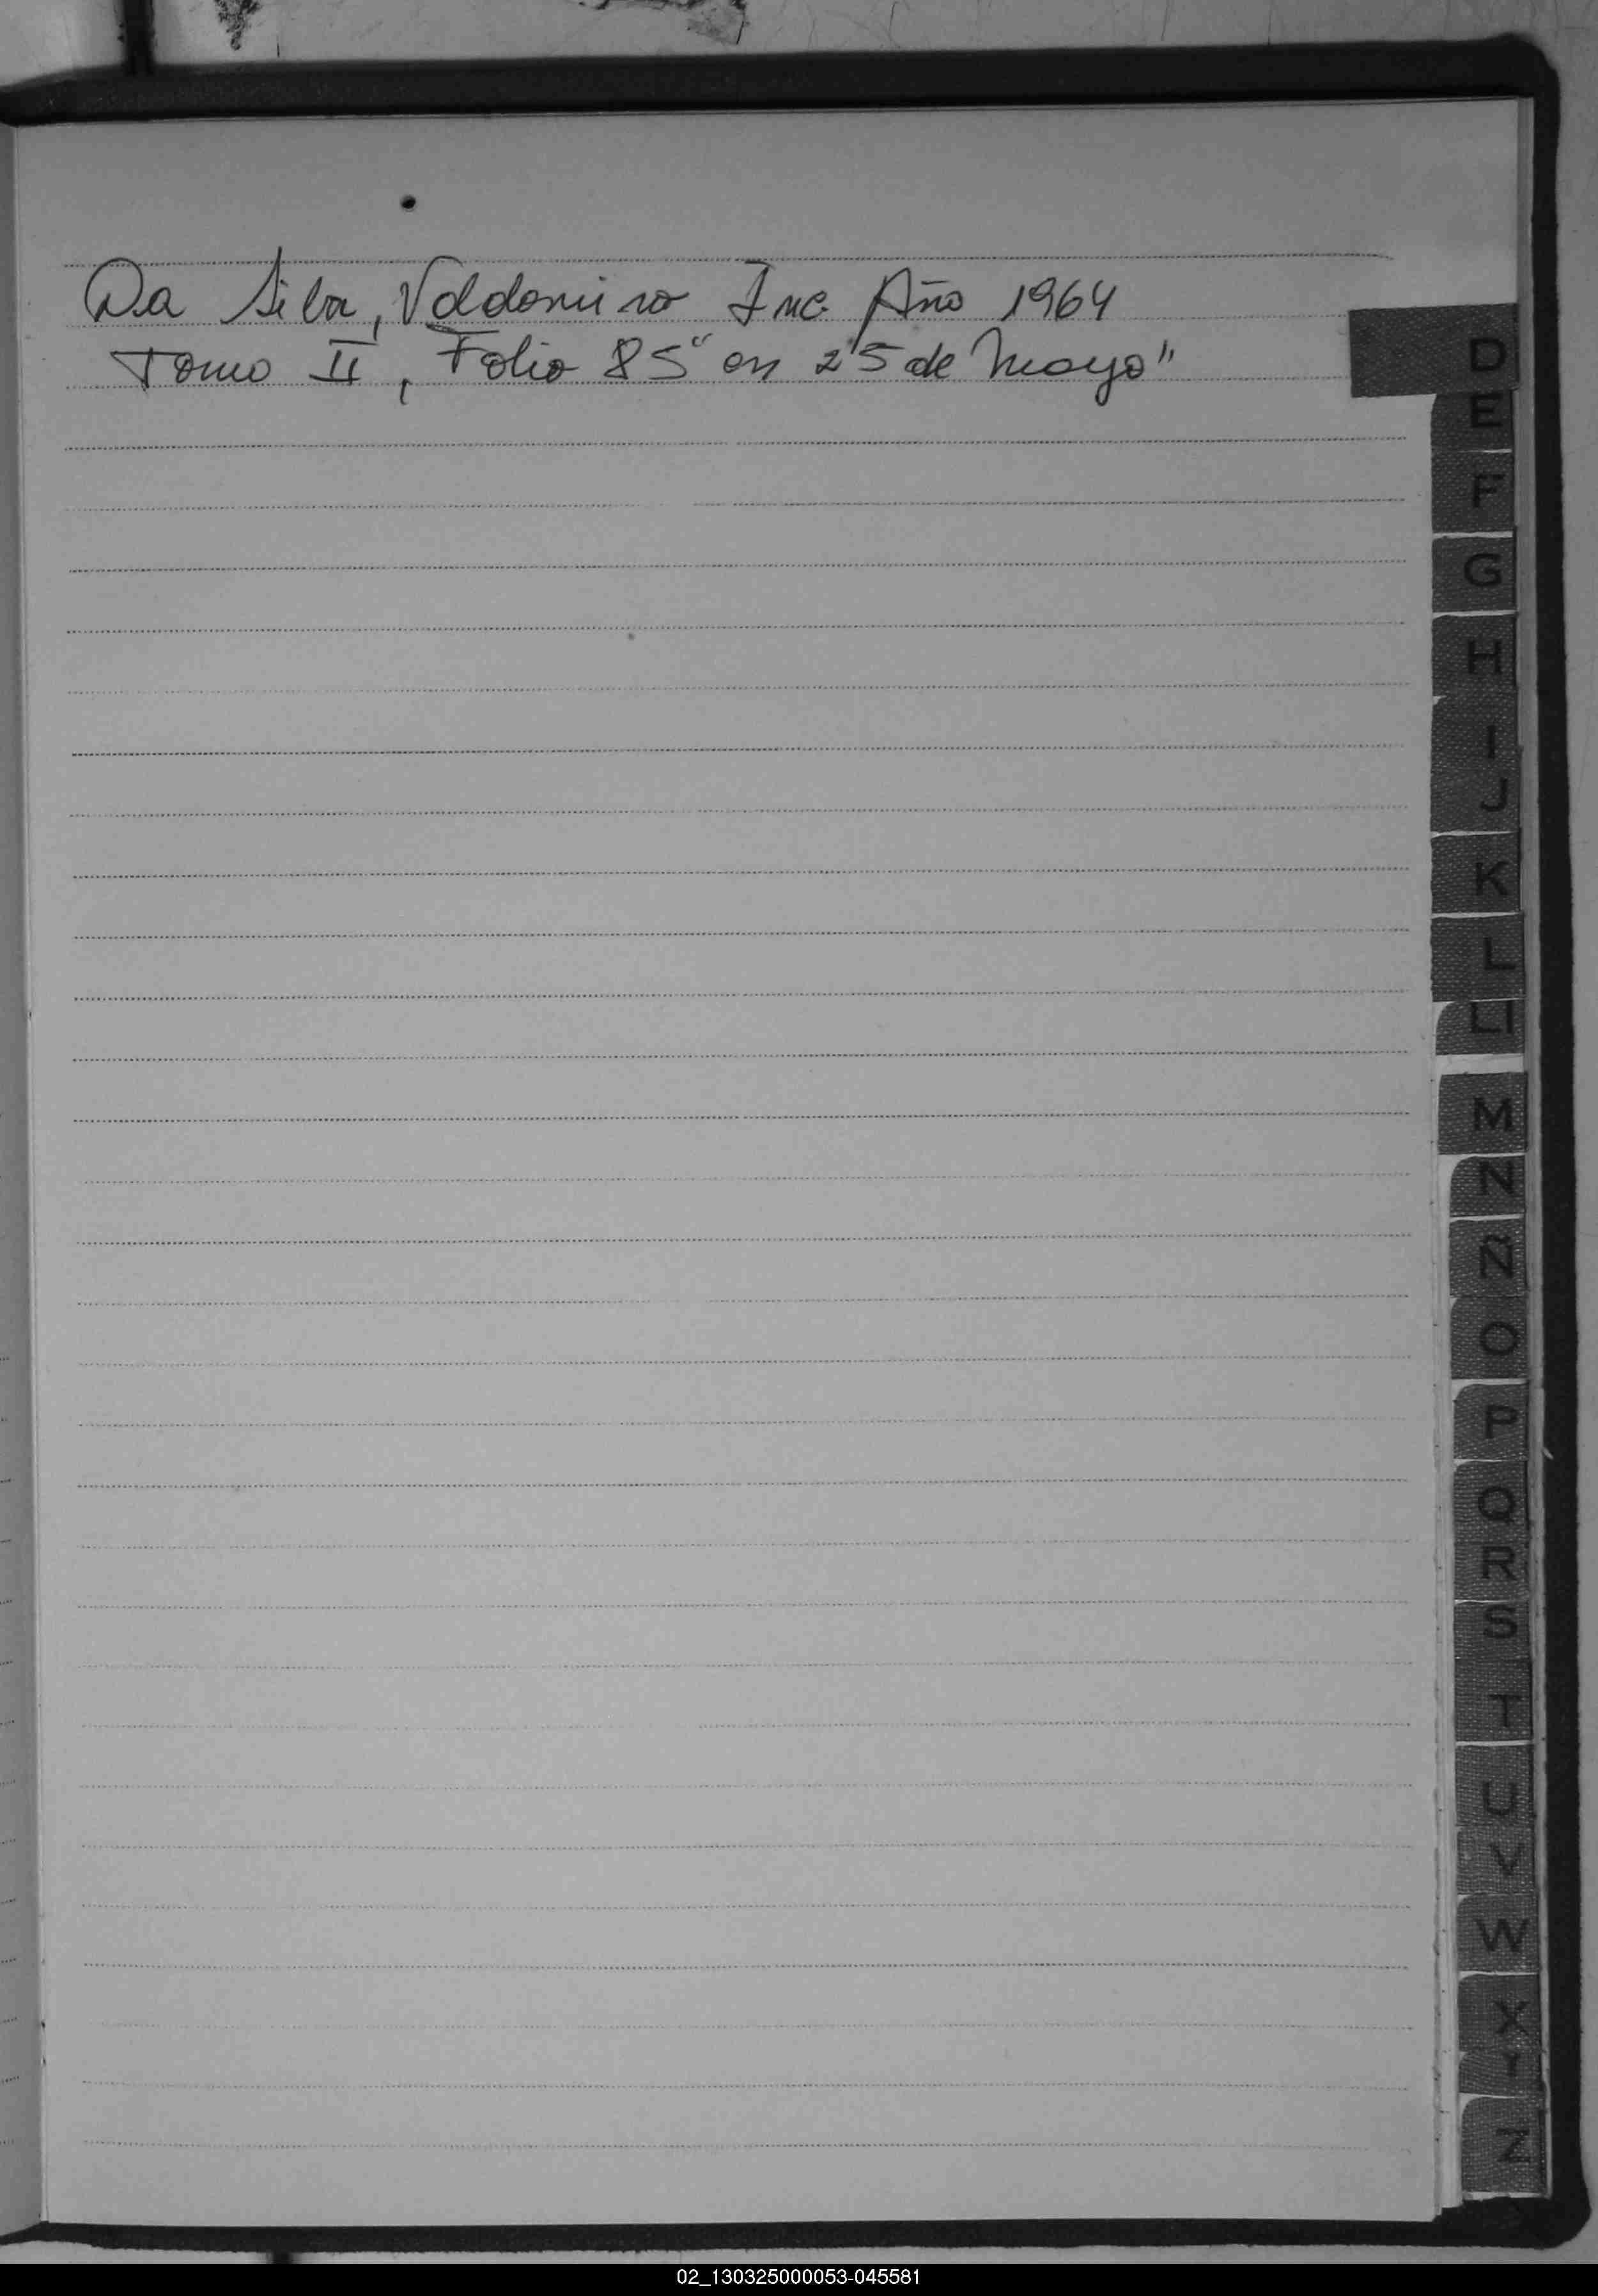 Da Silva, Valdomiro Inc. Año 1964
Tomo II, Folio 85 "en 25 de Mayo"
D
E
F
G
H
I
J
K
L
LL
M
N
Ñ
O
P
Q
R
S
T
U
V
W
X
Y
Z
02_130325000053-045581